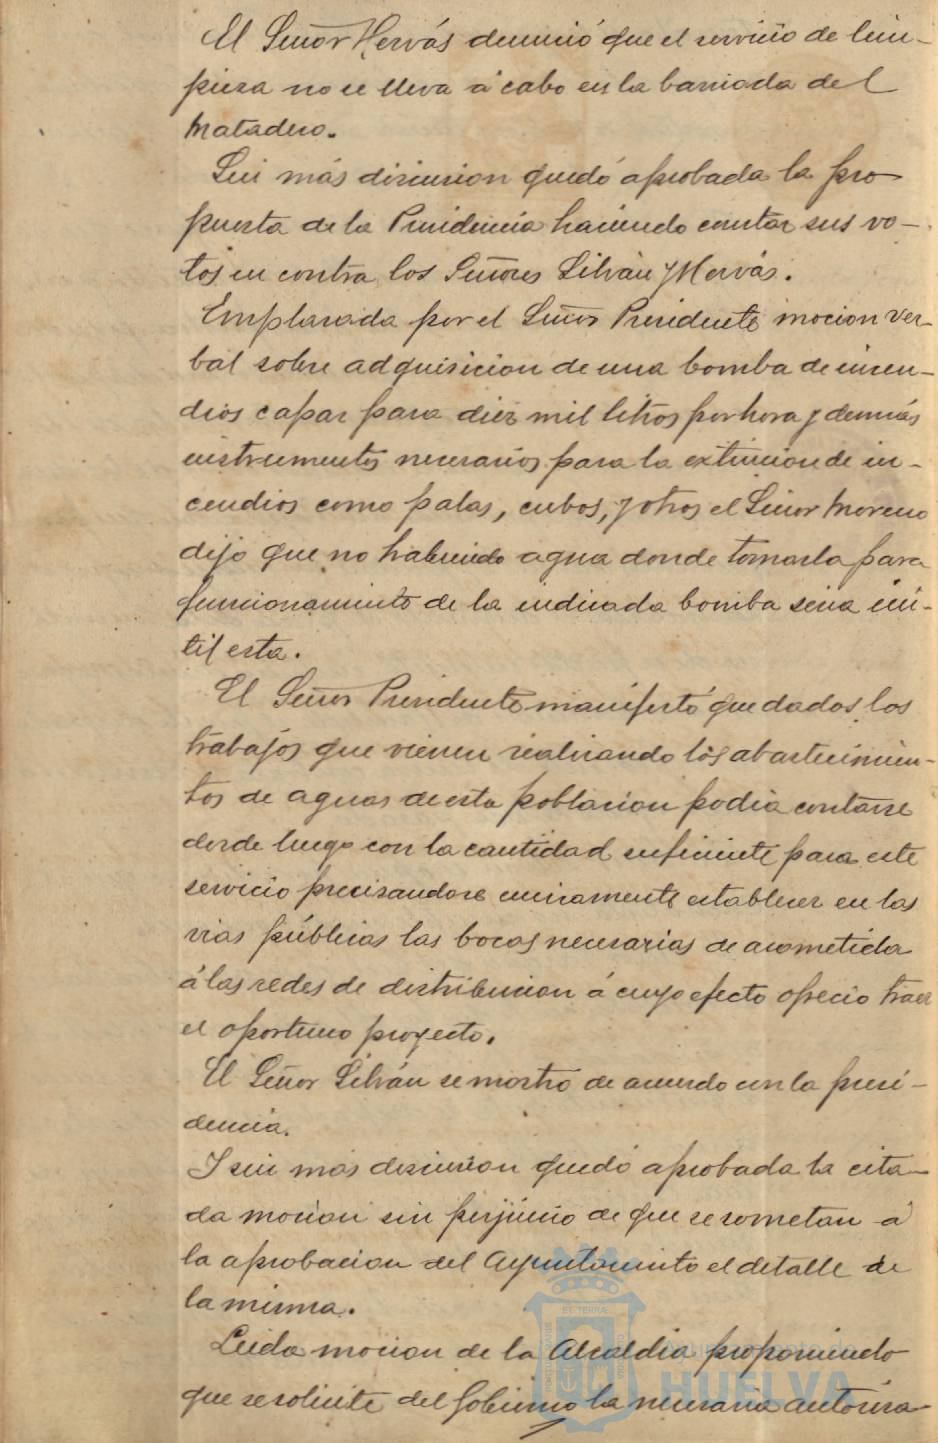 El Señor Hervás denunció que el servicio de lim-
pieza no se lleva á cabo en la barriada del
Matadero.
Sin más discusion quedó aprobada la pro
puesta de la Presidencia haciendo constar sus vo-
tos en contra los Señores Silván y Hervás.
Emplazada por el Señor Presidente mocion ver-
bal sobre adquisicion de una bomba de incen-
dios capaz para diez mil litros por hora y demás
instrumentos necesarios para la extincion de in-
cendios como palas, cubos, y otros el Señor Moreno
dijo que no habiendo agua donde tomarla para
funcionamiento de la indicada bomba seria inú-
til esta.
El Señor Presidente manifestó que dados los
trabajos que vienen realizando los abastecimien-
tos de aguas de esta poblacion podia contarse
desde luego con la cantidad suficiente para este
servicio precisandose unicamente establecer en las
vias públicas las bocas necesarias de acometida
á las redes de distribucion á cuyo efecto ofrecio traer
el oportuno proyecto.
El Señor Silván se mostró de acuerdo con la presi-
dencia.
Y sin más discusion quedó aprobada la cita-
da mocion sin perjuicio de que se sometan á
la aprobacion del Ayuntamiento el detalle de
la misma.
Leida mocion de la Alcaldia proponiendo
que se solicite del Gobierno la necesaria autoriza-
ET TERRÆ
HUELVA